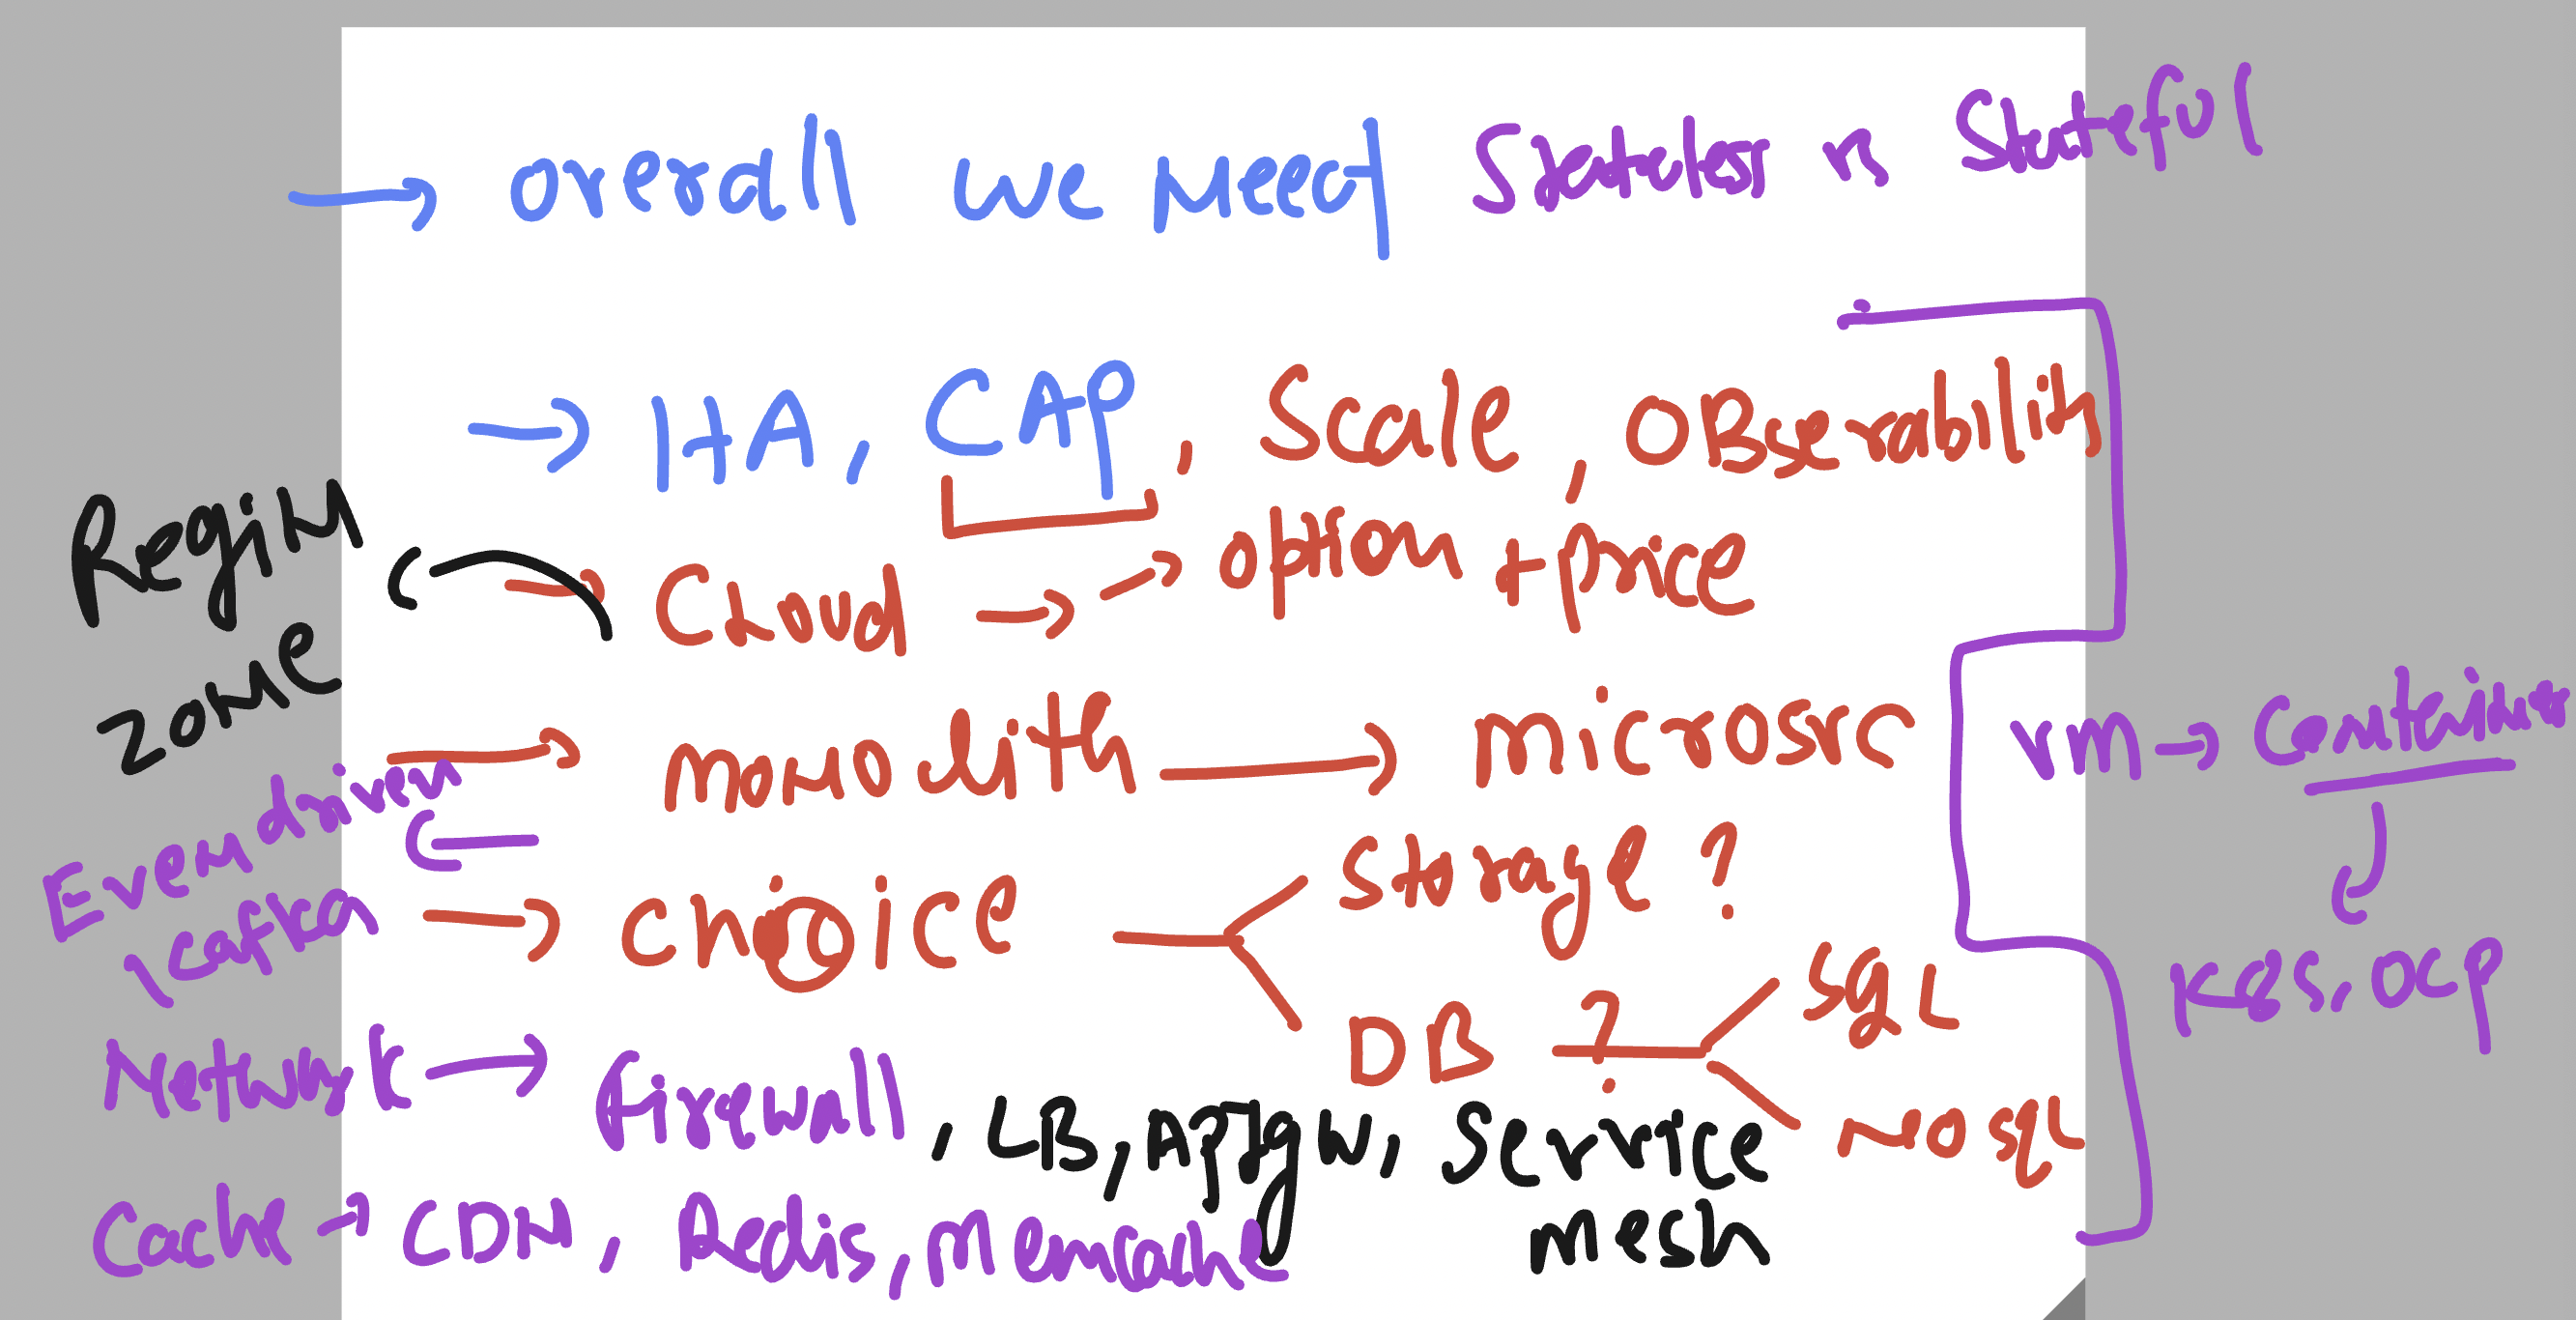 → overall we need Stateless vs Stateful
→ HA, CAP, Scale, OBserability
Region
zone
→ Cloud → → option + price
→ monolith → microsrc
vm → Container
→ K8s, OCP
Even driven
Kafka
→ choice
Storage ?
DB ?
SQL
NO SQL
Network → firewall, LB, APIgw, Service mesh
Cache → CDN, Redis, Memcache